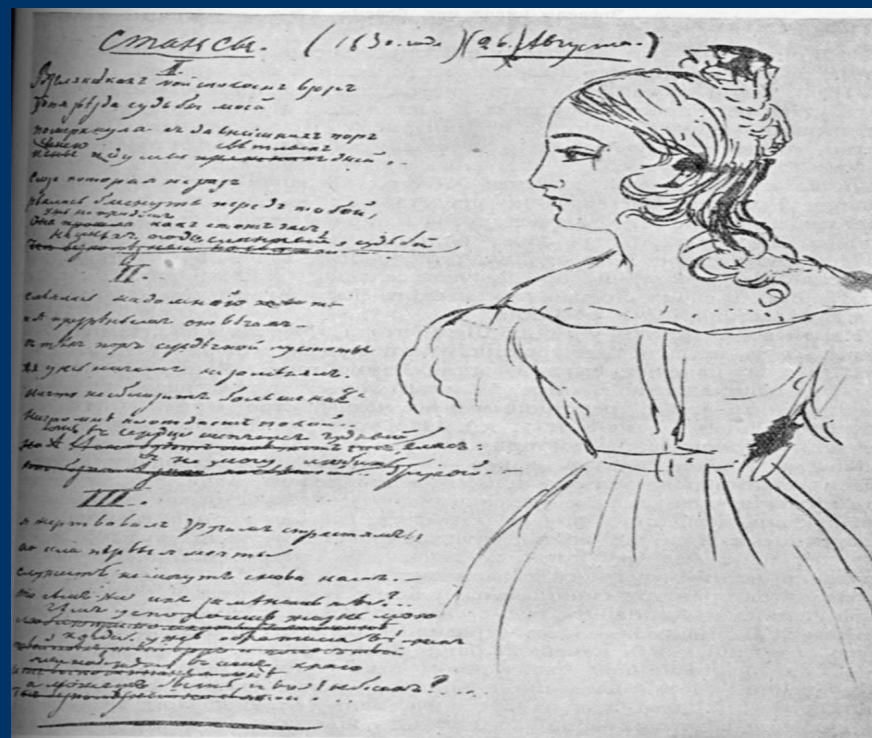 Стансы. (1830 года) (26 Августа.)
I.
Взгляни какъ мой спокоенъ взоръ
Хотя звѣзда судьбы моей
померкнула съ давнишнихъ поръ
и съ нею думы свѣтлыхъ дней..
Слеза которая не разъ
рвалась блеснуть передъ тобой,
Ужъ не придетъ какъ этотъ часъ
На смѣхъ подосланный судьбой
II.
смѣялась надо мною ты
и я презрѣньемъ отвѣчалъ
съ тѣхъ поръ сердечной пустоты
я ужъ ничемъ не замѣнялъ.
ничто не сблизитъ больше насъ
ничто мнѣ не отдастъ покой..
Хоть въ сердцѣ шепчетъ чудный гласъ
Я не могу любить другой.
III.
я жертвовалъ другимъ страстямъ,
но если первыя мечты
служить не могутъ снова намъ.—
то чемъ же ихъ замѣнишь ты?..
Чемъ успокоишь жизнь мою
когда ужъ обратила въ прахъ
мои надежды въ семъ краю
а можетъ быть и въ небесахъ?...